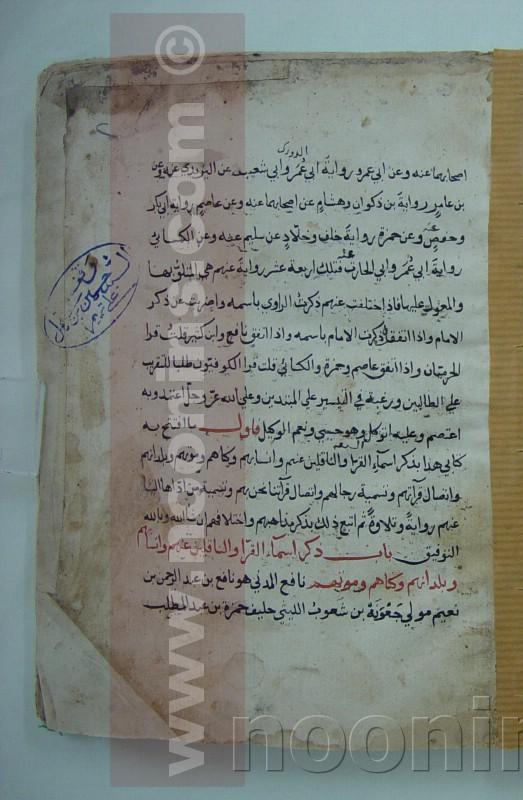 الدوري
اصحابهما عنه وعن ابي عمرو رواية ابي عُمر وابي شعيب عن اليزيدي عنه وعن
بن عامر رواية بن ذكوان وهشام عن اصحابهما عنه وعن عاصم رواية ابي بكر
وحفص عنه وعن حمزة رواية خلف وخلاد عن سليم عنه وعن الكسائي
رواية ابي عُمر وابي الحارث عنه فتلك اربعة عشر رواية عنهم هي المتلو بها
والمعول عليها فاذا اختلفت عنهم ذكرت الراوي باسمه واضربت عن ذكر
الامام واذا اتفقا ذكرت الامام باسمه واذا اتفق نافع وابن كثير قلت قرا
الحرميان واذا اتفق عاصم وحمزة والكسائي قلت قرا الكوفيون طلبا للتقريب
على الطالبين ورغبة في التيسير على المبتدين وعلى الله عز وجل اعتمد وبه
اعتصم وعليه اتوكل وهو حسبي ونعم الوكيل فاول ما افتتح به
كتابي هذا بذكر اسماء القراء السبعة والناقلين عنهم وانسابهم وكناهم وموتهم وبلدانهم
واتصال قراتهم وتسمية رجالهم واتصال قراتنا نحن بهم وتسمية من اداها الينا
عنهم رواية وتلاوة ثم اتبع ذلك بذكر مذاهبهم واختلافهم ان شا الله وبالله
التوفيق باب ذكر اسماء القرا والناقلين عنهم وانسابهم
وبلدانهم وكناهم وموتهم نافع المدني هو نافع بن عبد الرحمن بن
نعيم مولي جَعْوَنَة بن شعوب الليثي حليف حمزة بن عبد المطلب
www.noorlis.com ©
noorlin